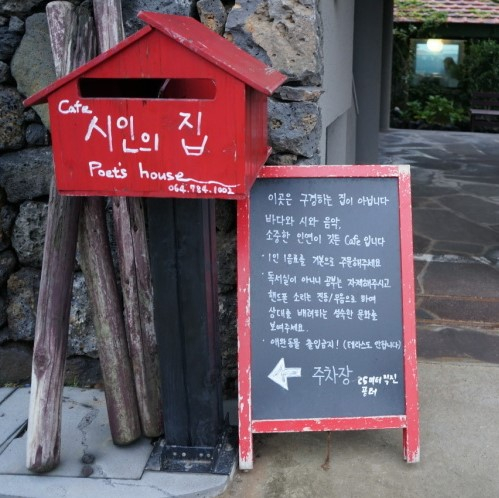 Cafe
시인의 집
Poet's house
064.784.1002
이곳은 구경하는 집이 아닙니다
바다와 시와 음악,
소중한 인연이 깃든 Cafe 입니다
· 1인 1음료를 기본으로 주문해주세요
· 독서실이 아니니 공부는 자제해주시고
핸드폰 소리는 진동/무음으로 하여
상대를 배려하는 성숙한 문화를
보여주세요.
· 애완동물 출입금지! (테라스도 안됩니다)
← 주차장 25미터 직진